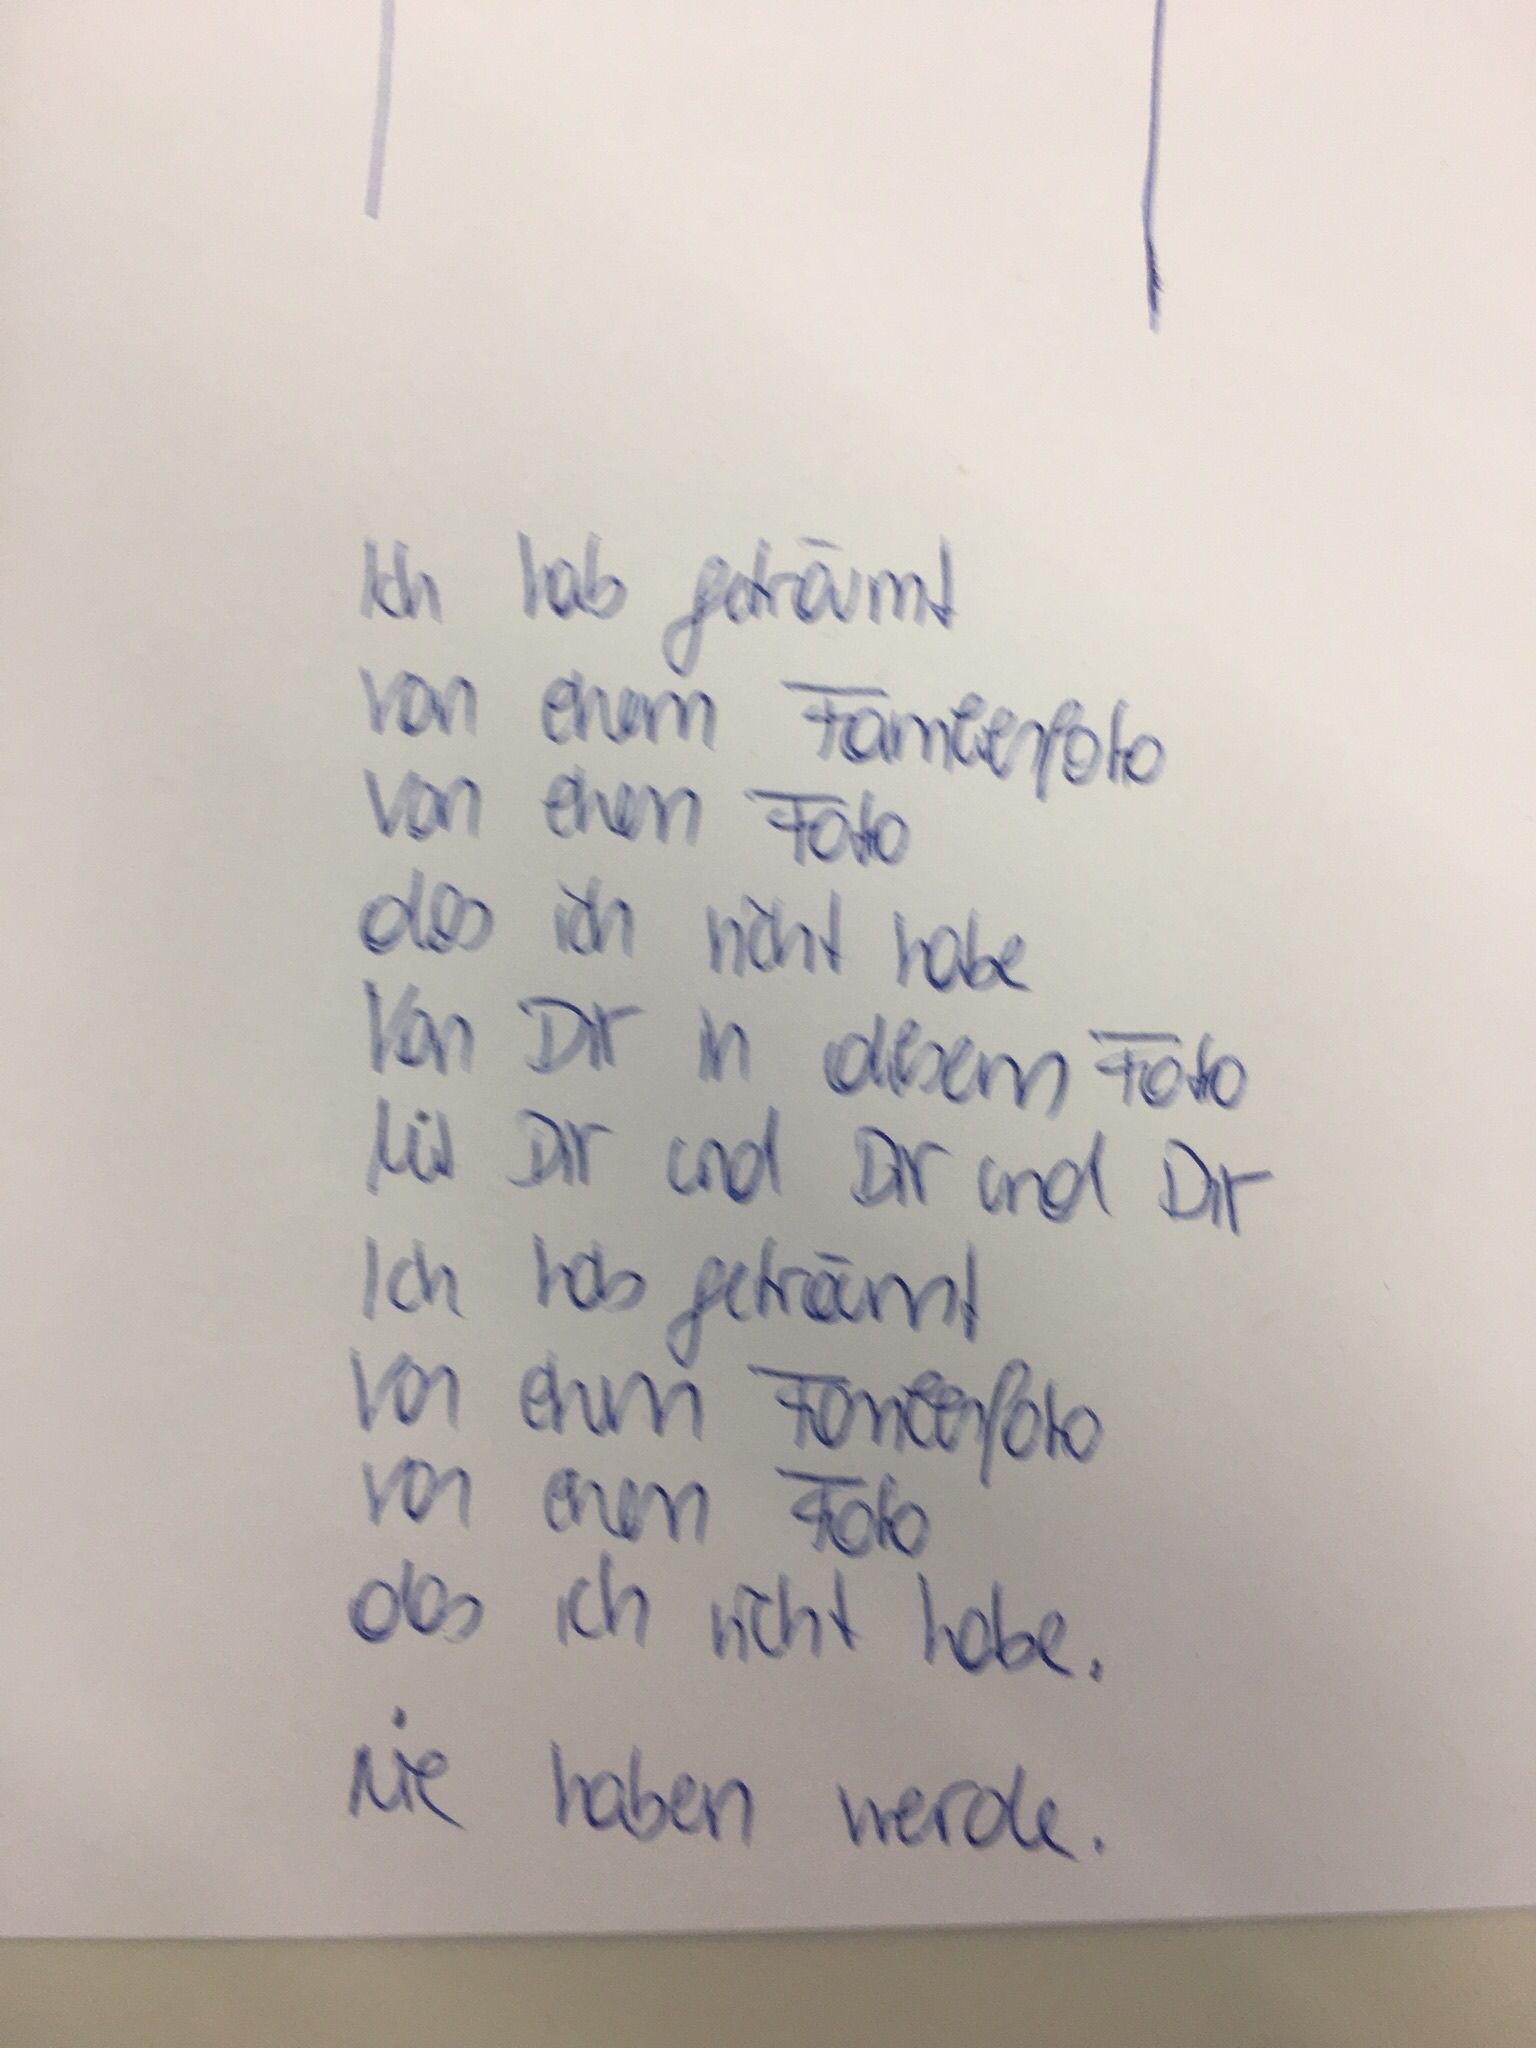 Ich hab geträumt
von einem Familienfoto
von einem Foto
das ich nicht habe
Von Dir in diesem Foto
Mit Dir und Dir und Dir
Ich hab geträumt
von einem Familienfoto
von einem Foto
das ich nicht habe.
Nie haben werde.